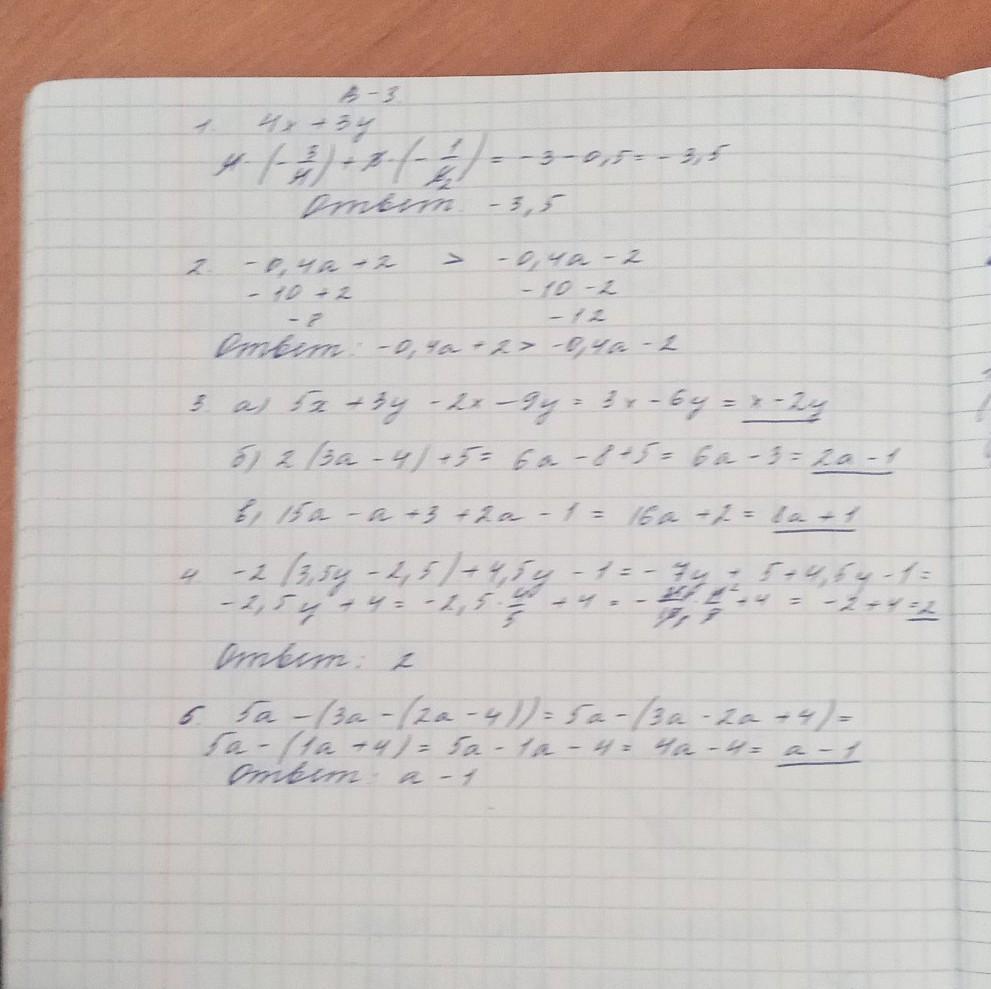 В-3
1. 4x + 3y
4·(-3/4) + 3·(-1/6 2) = -3 - 0,5 = -3,5
Ответ: -3,5
2. -0,4a + 2 > -0,4a - 2
-10 + 2 -10 - 2
-8 -12
Ответ: -0,4a + 2 > -0,4a - 2
3. а) 5x + 3y - 2x - 9y = 3x - 6y = x - 2y
б) 2(3a - 4) + 5 = 6a - 8 + 5 = 6a - 3 = 2a - 1
в) 15a - a + 3 + 2a - 1 = 16a + 2 = 8a + 1
4. -2(3,5y - 2,5) + 4,5y - 1 = -7y + 5 + 4,5y - 1 =
-2,5y + 4 = -2,5 · 4/5 + 4 = - + 4 = -2 + 4 = 2
Ответ: 2
5. 5a - (3a - (2a - 4)) = 5a - (3a - 2a + 4) =
5a - (1a + 4) = 5a - 1a - 4 = 4a - 4 = a - 1
Ответ: a - 1